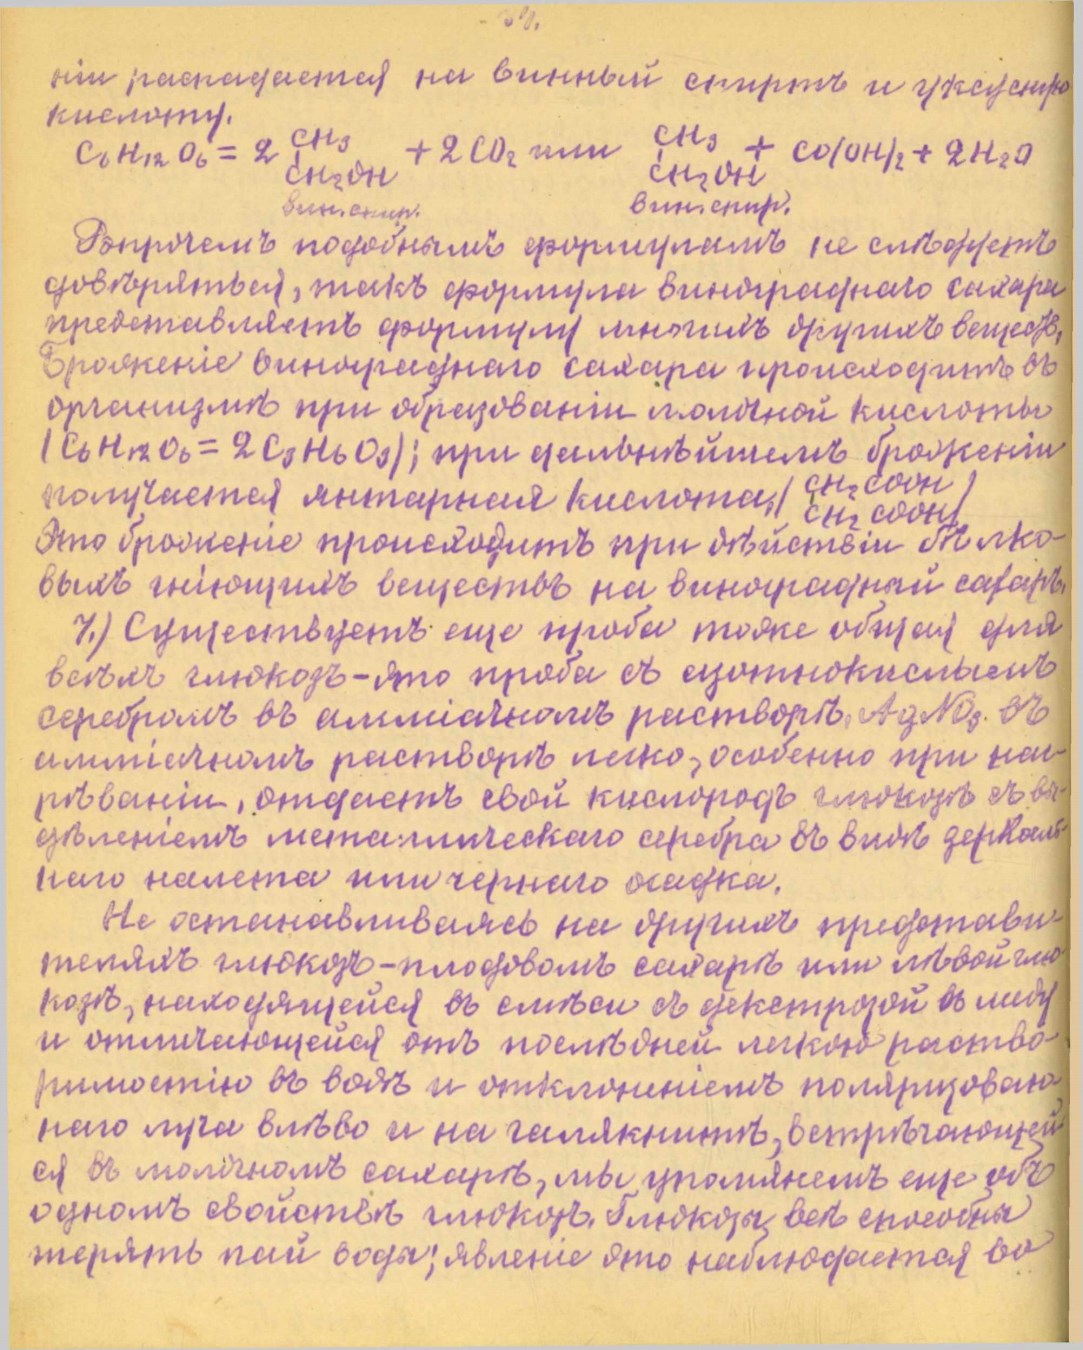 - 34.
ніи распадается на винный спиртъ и уксусную
кислоту.
C6H12O6 = 2 CH3 CH2OH + 2CO2 или CH3 CH2OH + CO(OH)2 + 2H2O
вин. спир. вин. спир.
Впрочемъ подобнымъ формуламъ не слѣдуетъ
довѣряться, такъ формула винограднаго сахара
представляетъ формулу многихъ другихъ веществ.
Броженіе винограднаго сахара происходитъ въ
организмѣ при образованіи молочной кислоты
(C6H12O6 = 2C3H6O3); при дальнѣйшемъ броженіи
получается янтарная кислота, (CH2COOH CH2COOH)
Это броженіе происходитъ при дѣйствіи бѣлко-
выхъ гніющихъ веществъ на виноградный сахаръ.
7.) Существуетъ еще проба тоже общая для
всѣхъ глюкозъ - это проба съ азотнокислымъ
серебромъ въ амміачномъ растворѣ. AgNO3 въ
амміачномъ растворѣ легко, особенно при наг-
рѣваніи, отдаетъ свой кислородъ глюкозѣ съ вы-
дѣленіемъ металлическаго серебра въ видѣ зеркаль-
наго налета или чернаго осадка.
Не останавливаясь на другихъ представи-
теляхъ глюкозъ - плодовомъ сахарѣ или лѣвой глю
козѣ, находящейся въ смѣси съ декстрозой въ меду
и отличающейся отъ послѣдней легкою раство-
римостію въ водѣ и отклоненіемъ поляризован-
наго луча влѣво и на галякнитѣ, встрѣчающей
ся въ молочномъ сахарѣ, мы упомянемъ еще объ
одномъ свойствѣ глюкозъ. Глюкозы всѣ способны
терять пай воды; явленіе это наблюдается во